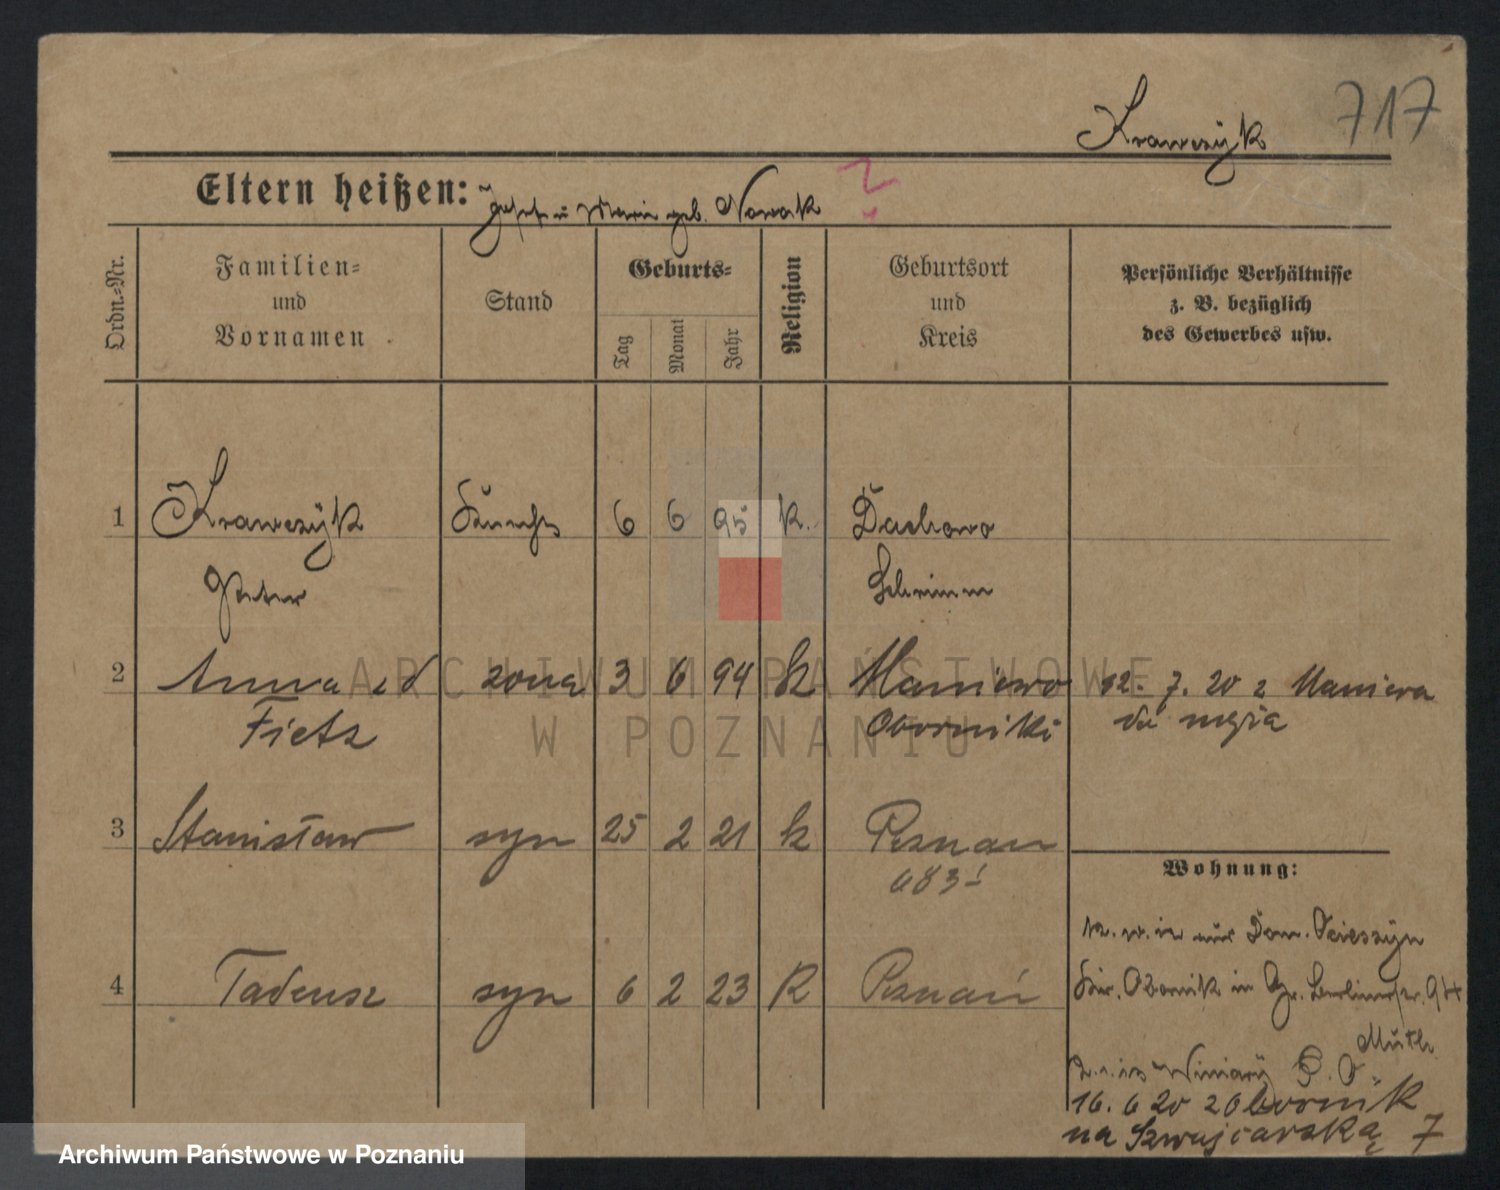 717
Krawczÿk
Eltern heißen: Josef u Marie geb. Nowak ?
Ordn.=Nr.
Familien=
und
Vornamen
Stand
Geburts=
Tag
Monat
Jahr
Religion
Geburtsort
und
Kreis
Persönliche Verhältnisse
z. B. bezüglich
des Gewerbes usw.
1 Krawczÿk 6 6 95 k. Dachowo
Peter Schrimm
2 Anna zd żona 3 6 94 k Maniewo 12. 7. 20 z Maniewa
Fietz Oborniki do męża
3 Stanisław syn 25 2 21 k Poznań
Wohnung:
4 Tadeusz syn 6 2 23 k Poznań
Obornik in Gr. Berlinerstr. 94
Winiarÿ
16. 6 20 z Obornik
na Szwajcarską 7
ARCHIWUM PAŃSTWOWE
W POZNANIU
Archiwum Państwowe w Poznaniu